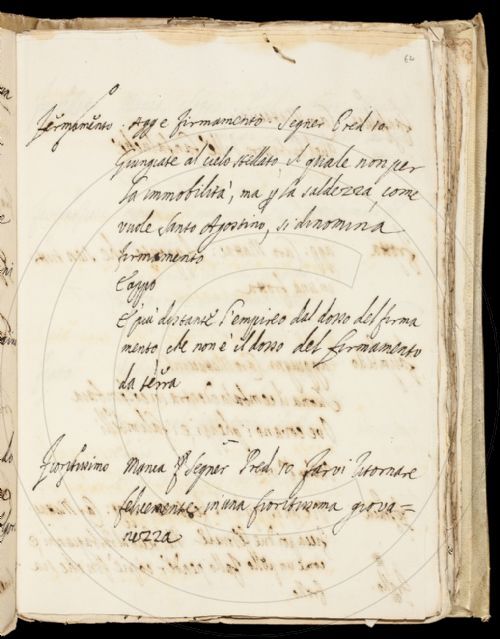 62
fermamento. Agg e firmamento. Segner Pred. 10.
Giungiate al cielo stellato, il quale non per
la immobilità, ma p la saldezza, come
vuole Santo Agostino, si dinomina
firmamento
E appo
E piu distante l'empireo dal dosso del firma
mento che non è il dosso del firmamento
da terra
fioritissimo Manca Segner Pred. 10 farvi ritornare
felicemente in una fioritissima giova=
nezza